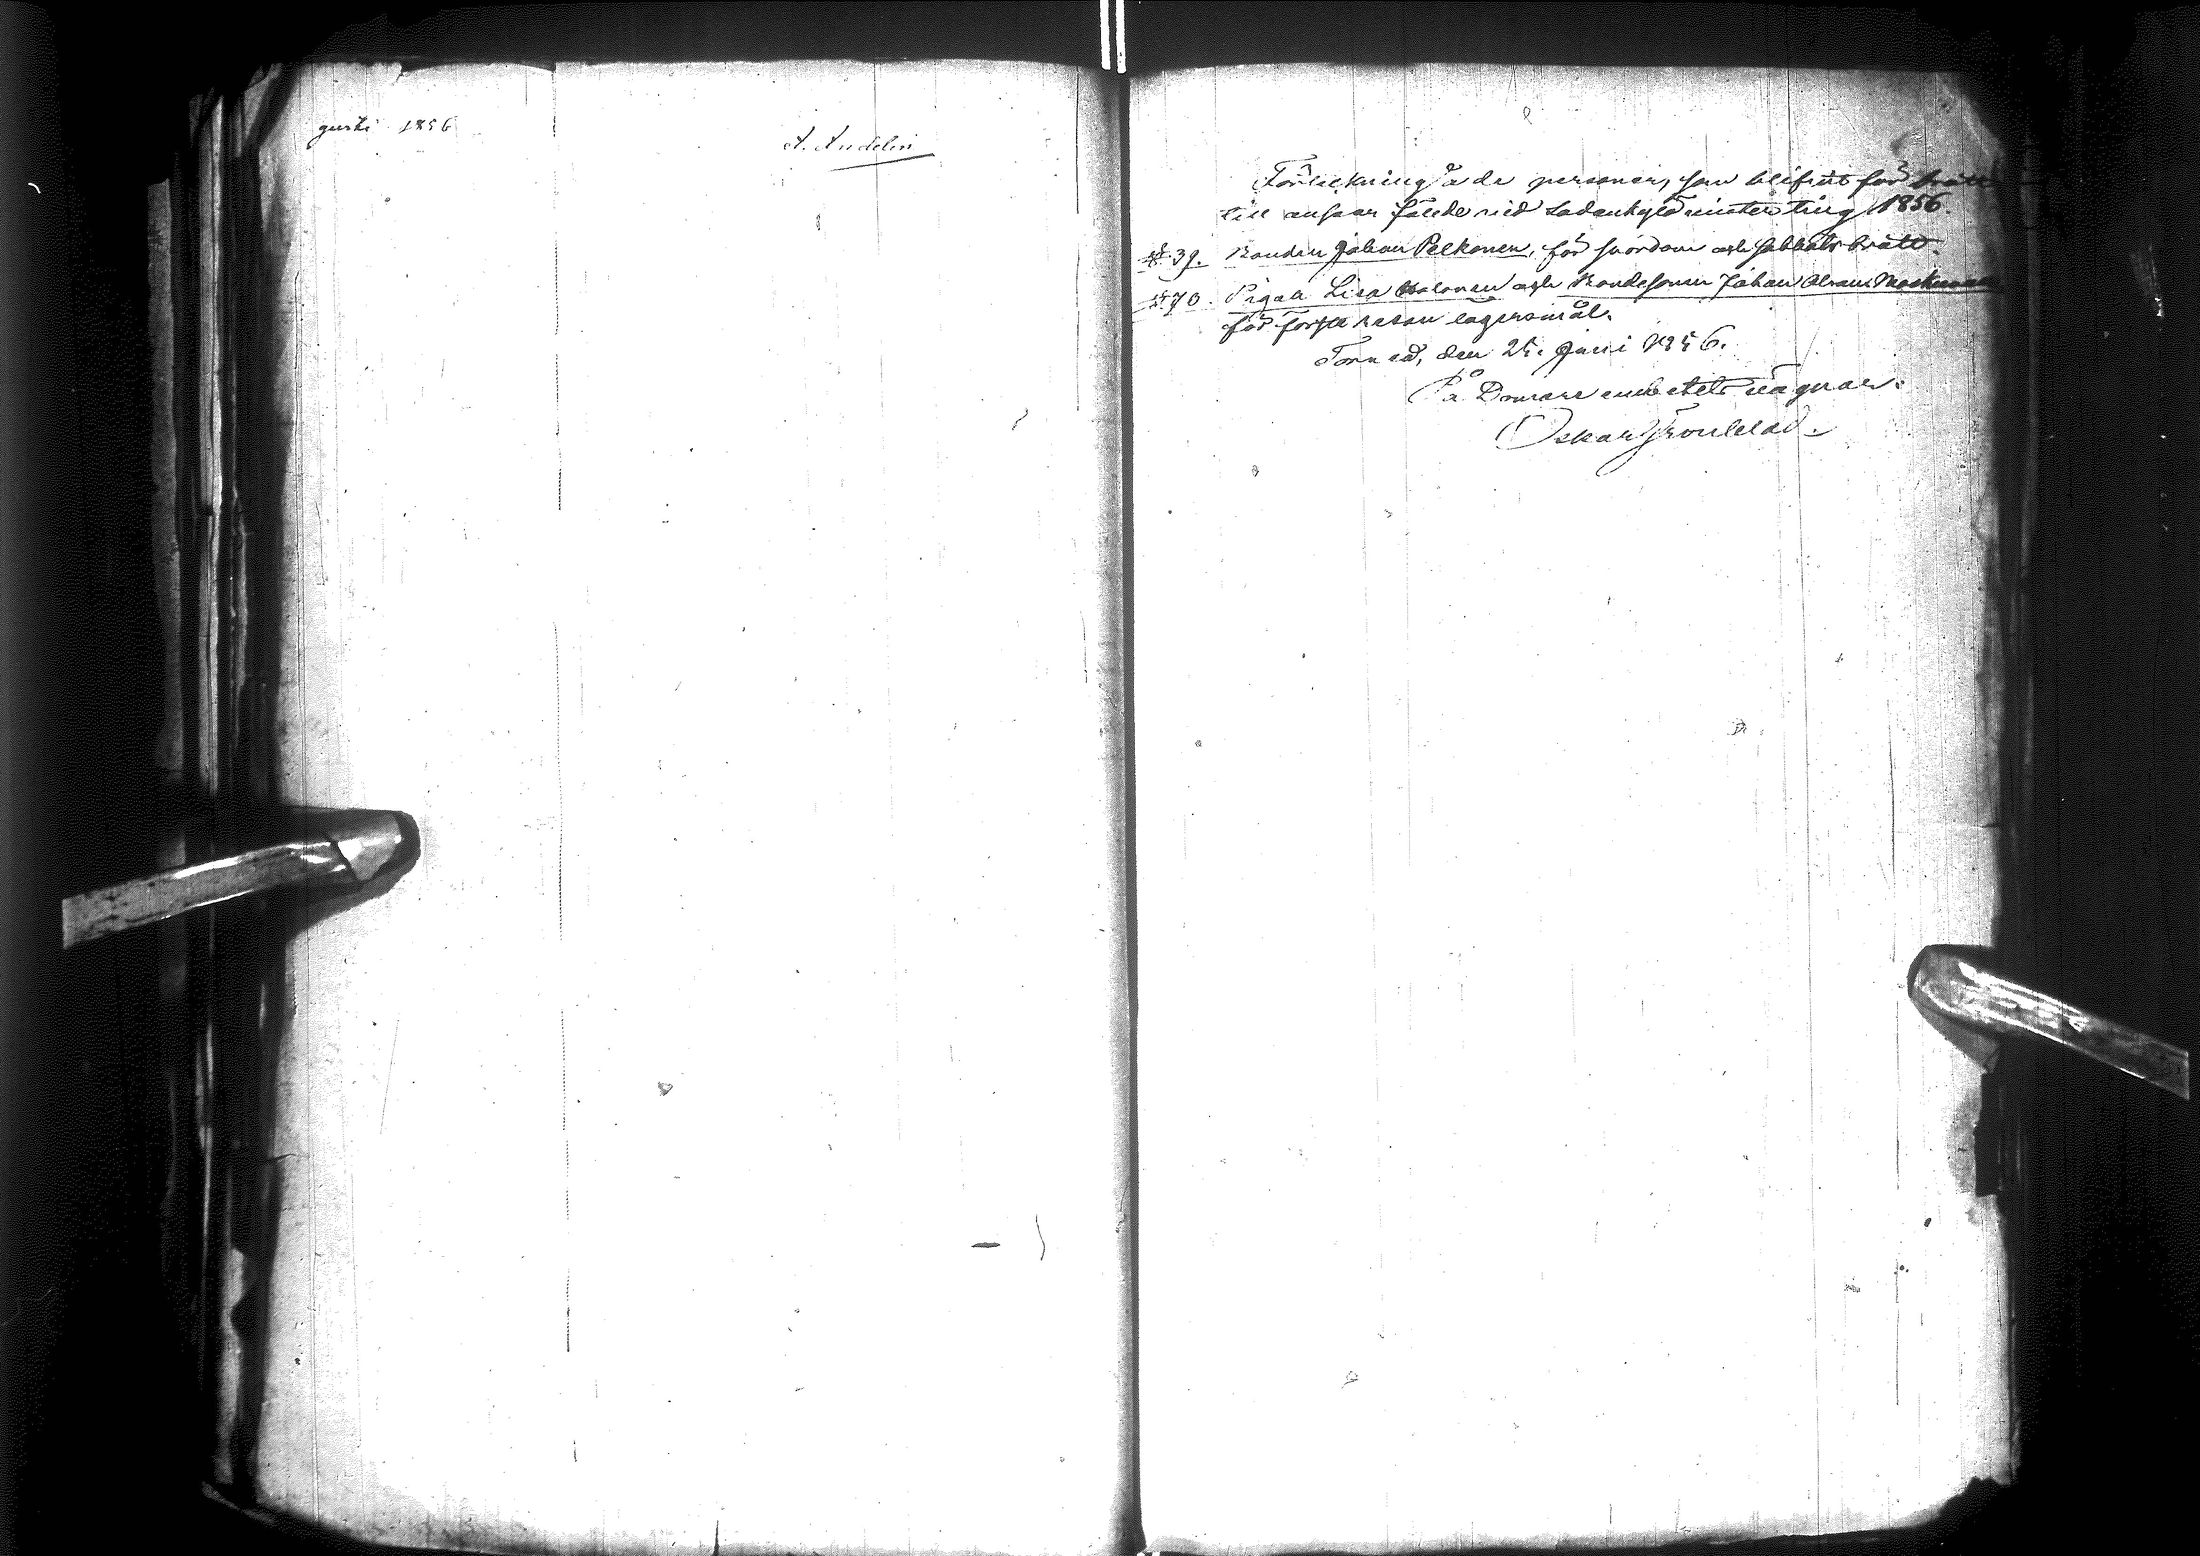 gusti 1856
A. Andelin
Förteckning å de personer, som blifvit för brott
till ansvar fälde vid Sodankylä vinterting 1856.
§ 39. Bonden Johan Pelkonen, för svordom och sabbatsbrott.
§ 70. Pigan Lisa Halonen och Bondesonen Johan Abram
för första resan lägersmål.
Torneå, den 25 Juni 1856.
På Domare embetets vägnar.
Oskar